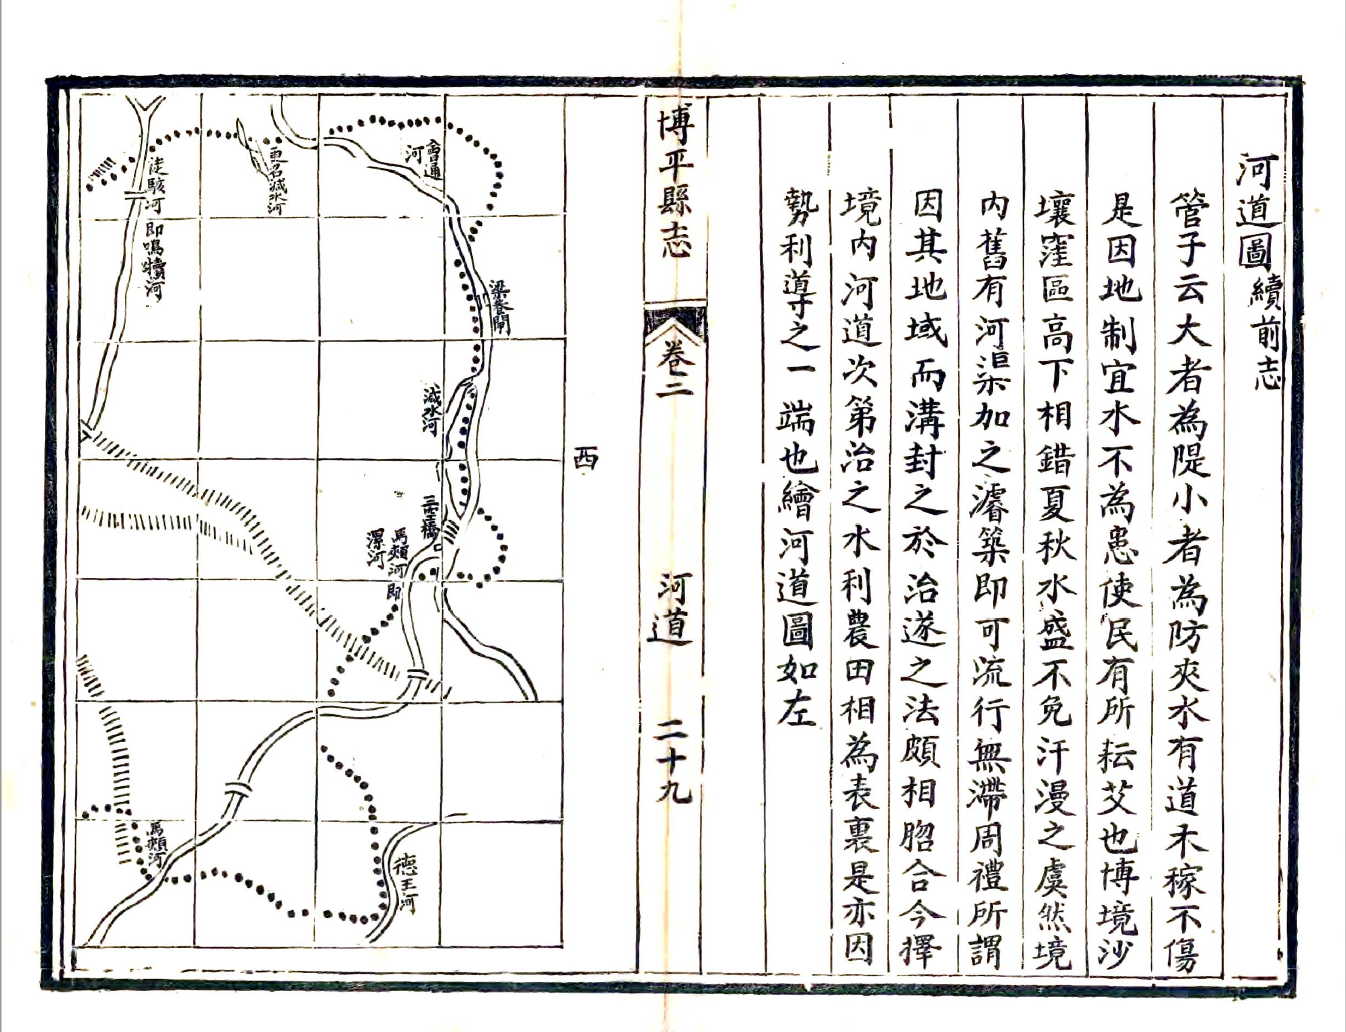 河道圖續前志
管子云大者為隄小者為防夾水有道禾稼不傷
是因地制宜水不為患使民有所耘艾也博境沙
壤窪區高下相錯夏秋水盛不免汗漫之虞然境
內舊有河渠加之濬築即可流行無滯周禮所謂
因其地域而溝封之於治遂之法頗相脗合今擇
境內河道次第治之水利農田相為表裏是亦因
勢利導之一端也繪河道圖如左
博平縣志
卷二
河道
二十九
西
會通河
梁巷閘
減水河
三空橋口
馬頰河即漯河
更名減水河
徒駭河即鳴犢河
德王河
馬頰河